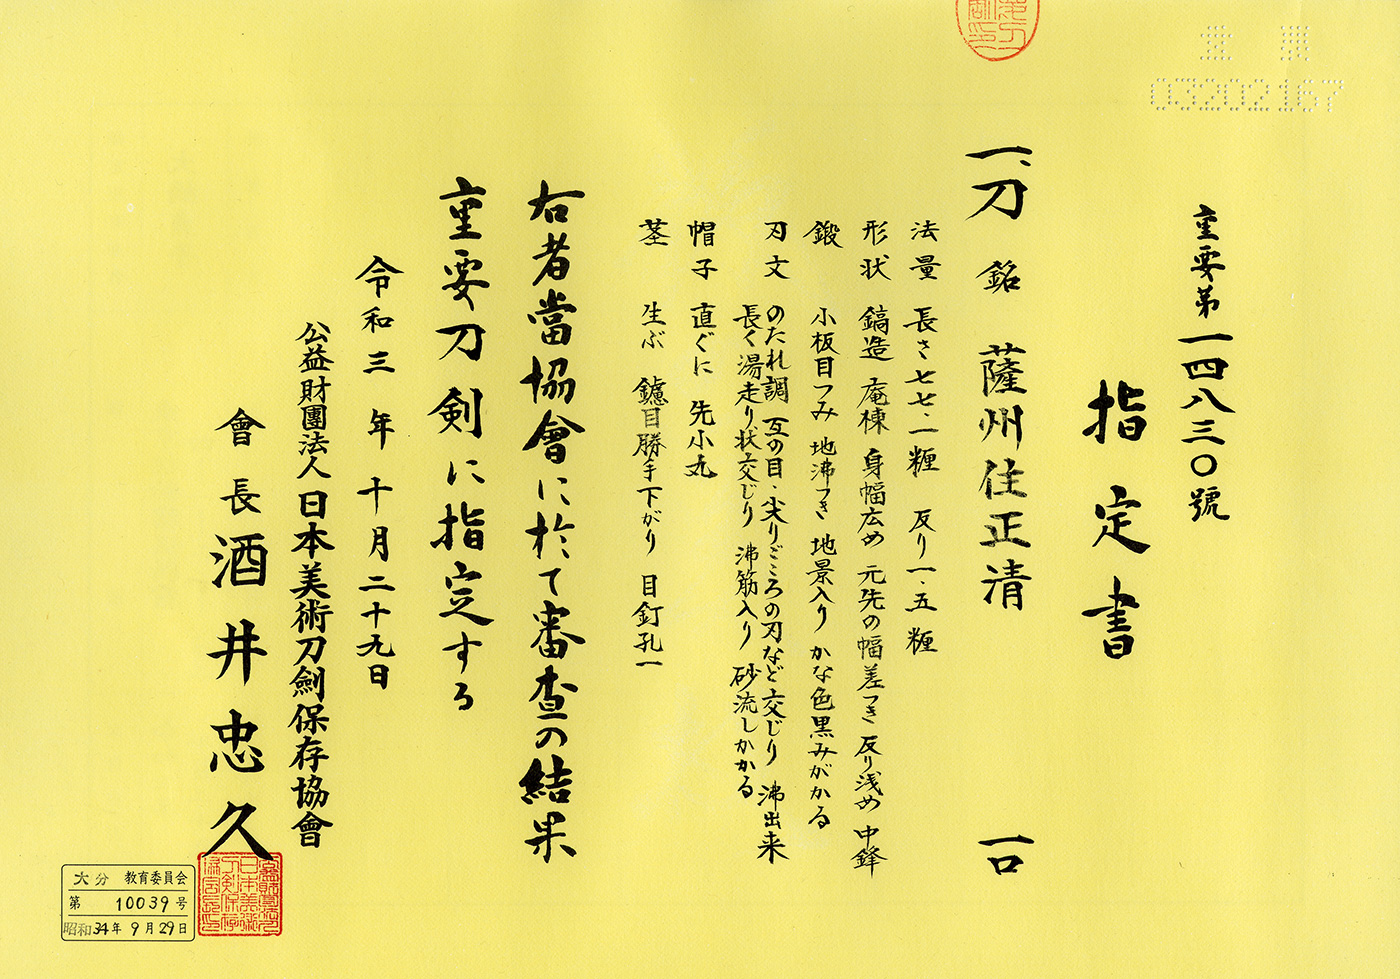 重要
03202167
重要第一四八三〇號
指定書
一、刀 銘 薩州住正清 一口
法量 長さ七七・一糎 反り一・五糎
形状 鎬造 庵棟 身幅広め 元先の幅差つき 反り浅め 中鋒
鍛 小板目つみ 地沸つき 地景入り かな色黒みがかる
刃文 のたれ調 互の目・尖りごころの刃など交じり 沸出来
長く湯走り状交じり 沸筋入り 砂流しかかる
帽子 直ぐに 先小丸
茎 生ぶ 鑢目勝手下がり 目釘孔一
右者當協會に於て審査の結果
重要刀剣に指定する
令和三年十月二十九日
公益財團法人日本美術刀劍保存協會
會長 酒井忠久
大分 教育委員会
第 10039号
昭和34年9月29日